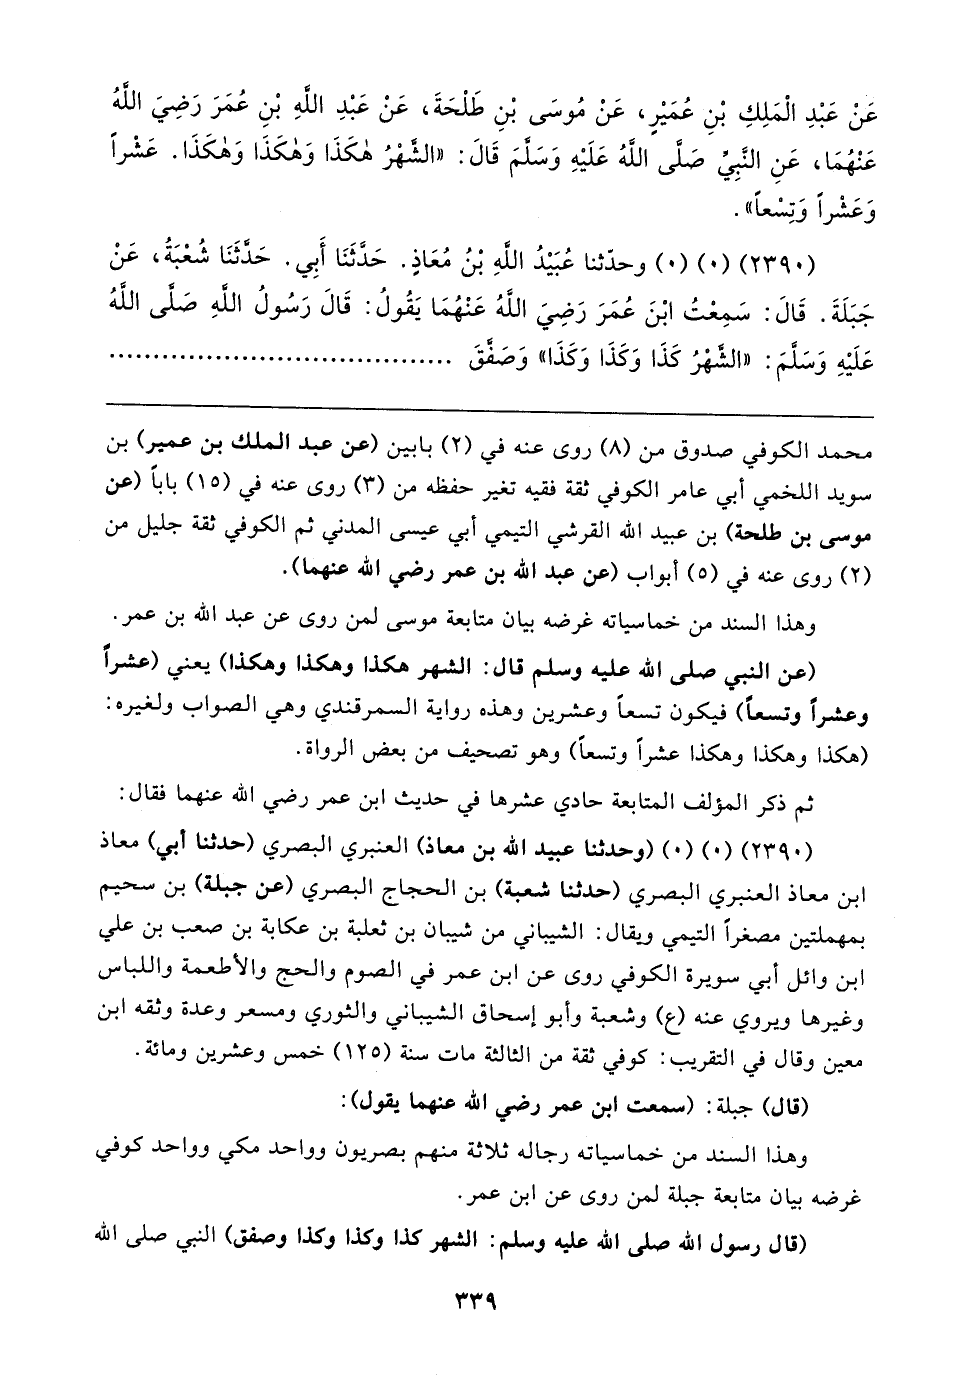 عَنْ عَبْدِ الْمَلِكِ بْنِ عُمَيْرٍ، عَنْ مُوسَى بْنِ طَلْحَةَ، عَنْ عَبْدِ اللَّهِ بْنِ عُمَرَ رَضِيَ اللَّهُ
عَنْهُمَا، عَنِ النَّبِيِّ صَلَّى اللَّهُ عَلَيْهِ وَسَلَّمَ قَالَ: «الشَّهْرُ هٰكَذَا وَهٰكَذَا وَهٰكَذَا. عَشْراً
وَعَشْراً وَتِسْعاً».
(٢٣٩٠) (٠) (٠) وحدّثنا عُبَيْدُ اللَّهِ بْنُ مُعَاذٍ. حَدَّثَنَا أَبِي. حَدَّثَنَا شُعْبَةُ، عَنْ
جَبَلَةَ. قَالَ: سَمِعْتُ ابْنَ عُمَرَ رَضِيَ اللَّهُ عَنْهُمَا يَقُولُ: قَالَ رَسُولُ اللَّهِ صَلَّى اللَّهُ
عَلَيْهِ وَسَلَّمَ: «الشَّهْرُ كَذَا وَكَذَا وَكَذَا» وَصَفَّقَ .....................................
محمد الكوفي صدوق من (٨) روى عنه في (٢) بابين (عن عبد الملك بن عمير) بن
سويد اللخمي أبي عامر الكوفي ثقة فقيه تغير حفظه من (٣) روى عنه في (١٥) باباً (عن
موسى بن طلحة) بن عبيد الله القرشي التيمي أبي عيسى المدني ثم الكوفي ثقة جليل من
(٢) روى عنه في (٥) أبواب (عن عبد الله بن عمر رضي الله عنهما).
وهذا السند من خماسياته غرضه بيان متابعة موسى لمن روى عن عبد الله بن عمر.
(عن النبي صلى الله عليه وسلم قال: الشهر هكذا وهكذا وهكذا) يعني (عشراً
وعشراً وتسعاً) فيكون تسعاً وعشرين وهذه رواية السمرقندي وهي الصواب ولغيره:
(هكذا وهكذا وهكذا عشراً وتسعاً) وهو تصحيف من بعض الرواة.
ثم ذكر المؤلف المتابعة حادي عشرها في حديث ابن عمر رضي الله عنهما فقال:
(٢٣٩٠) (٠) (٠) (وحدثنا عبيد الله بن معاذ) العنبري البصري (حدثنا أبي) معاذ
ابن معاذ العنبري البصري (حدثنا شعبة) بن الحجاج البصري (عن جبلة) بن سحيم
بمهملتين مصغراً التيمي ويقال: الشيباني من شيبان بن ثعلبة بن عكابة بن صعب بن علي
ابن وائل أبي سويرة الكوفي روى عن ابن عمر في الصوم والحج والأطعمة واللباس
وغيرها ويروي عنه (ع) وشعبة وأبو إسحاق الشيباني والثوري ومسعر وعدة وثقه ابن
معين وقال في التقريب: كوفي ثقة من الثالثة مات سنة (١٢٥) خمس وعشرين ومائة.
(قال) جبلة: (سمعت ابن عمر رضي الله عنهما يقول):
وهذا السند من خماسياته رجاله ثلاثة منهم بصريون وواحد مكي وواحد كوفي
غرضه بيان متابعة جبلة لمن روى عن ابن عمر.
(قال رسول الله صلى الله عليه وسلم: الشهر كذا وكذا وكذا وصفق) النبي صلى الله
٣٣٩